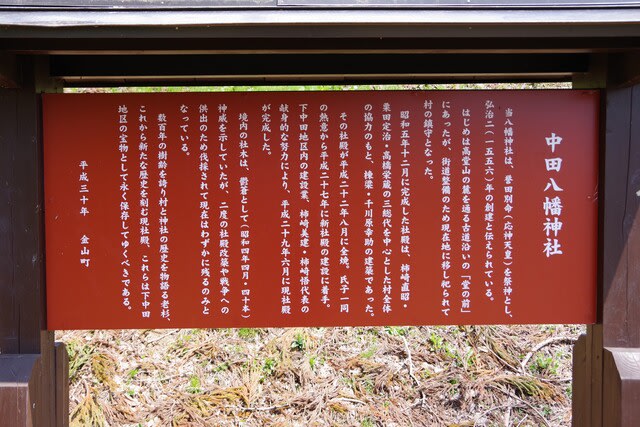 中田八幡神社
当八幡神社は、誉田別命(応神天皇)を祭神とし、
弘治二(一五五六)年の創建と伝えられている。
はじめは高堂山の麓を通る古道沿いの「堂の前」
にあったが、街道整備のため現在地に移し祀られて
村の鎮守となった。
昭和五年十二月に完成した社殿は、柿﨑直昭・
栗田定治・高橋栄蔵の三総代を中心とした村全体
の協力のもと、棟梁・千川原幸助の建築であった。
その社殿が平成二十二年八月に全焼。氏子一同
の熱意から平成二十七年に新社殿の建設に着手。
下中田地区内の建設業、柿﨑美建・柿﨑悟代表の
献身的な努力により、平成二十九年六月に現社殿
が完成した。
境内の社木は、鬱蒼として(昭和四年四月・四十本)
神威を示していたが、二度の社殿改築や戦争への
供出のため伐採されて現在はわずかに残るのみと
なっている。
数百年の樹齢を誇り村と神社の歴史を物語る老杉、
これから新たな歴史を刻む現社殿、これらは下中田
地区の宝物として永く保存してゆくべきである。
平成三十年 金山町